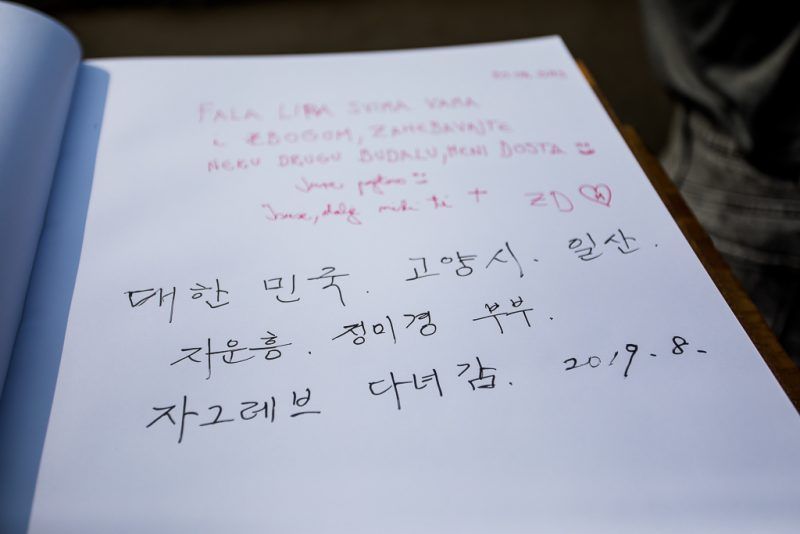 FALA LIPA SVIMA VAMA
ZBOGOM,
NEKU DRUGU BUDALU, MENI DOSTA
+ ZD
대한 민국. 고양시. 일산.
자운흥. 정미경 부부.
자그레브 다녀감. 2019.8.